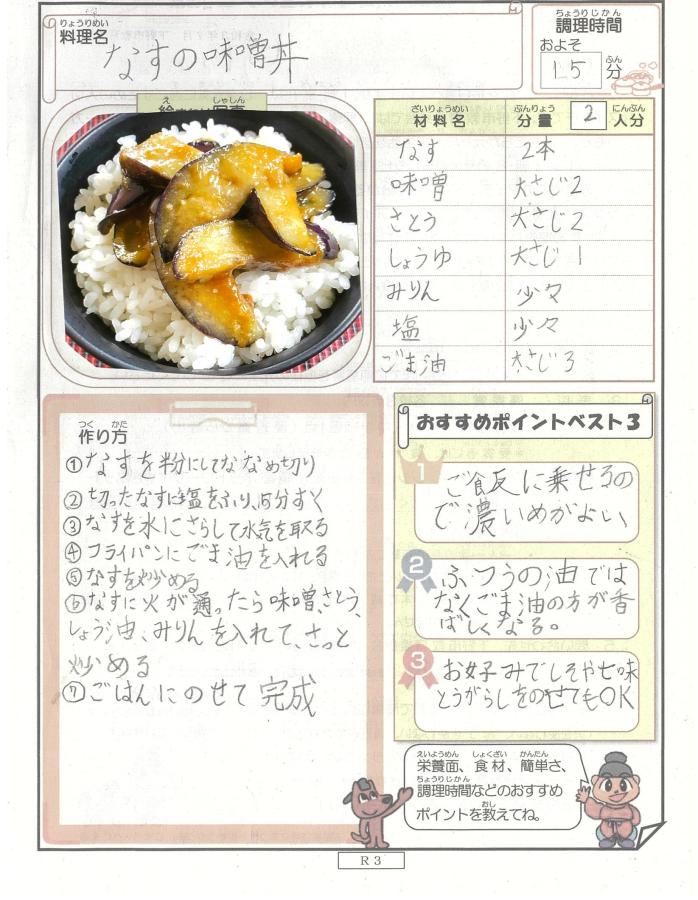 りょうりめい
料理名
なすの味噌丼
ちょうりじかん
調理時間
およそ
15
ふん
分
え
しゃしん
ざいりょうめい
ぶんりょう
にんぶん
材料名
分量
2
人分
なす
2本
味噌
大さじ2
さとう
大さじ2
しょうゆ
大さじ1
みりん
少々
塩
少々
ごま油
大さじ3
つく
かた
作り方
①なすを粉にしてななめ切り
②切ったなすに塩をふり、
③なすを水にさらして水気を取る
④フライパンにごま油を入れる
⑤なすを炒める
⑥なすに火が通ったら味噌、さとう、
しょう油、みりんを入れて、さっと
炒める
⑦ごはんにのせて完成
おすすめポイントベスト3
1
ご飯に乗せるの
で濃いめがよい、
2
ふつうの油では
なくごま油の方が香
ばしくなる。
3
お好みでしそや七味
とうがらしをのせてもOK
えいようめん
しょくざい
かんたん
栄養面、食材、簡単さ、
ちょうりじかん
調理時間などのおすすめ
おし
ポイントを教えてね。
R3